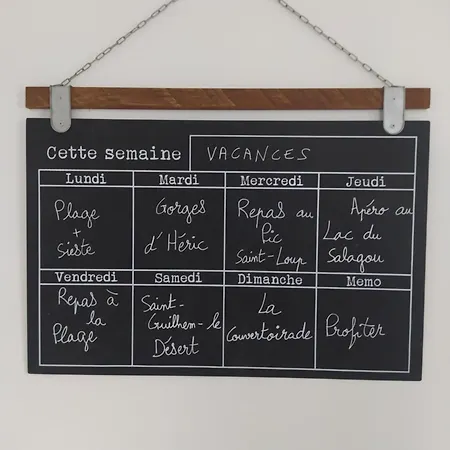 Cette semaine
VACANCES
Lundi
Plage
+
Sieste
Mardi
Gorges
d'Héric
Mercredi
Repas au
Pic
Saint-Loup
Jeudi
Apéro au
Lac du
Salagou
Vendredi
Repas à
la
Plage
Samedi
Saint-
Guilhem-le
Désert
Dimanche
La
Couvertoirade
Memo
Profiter